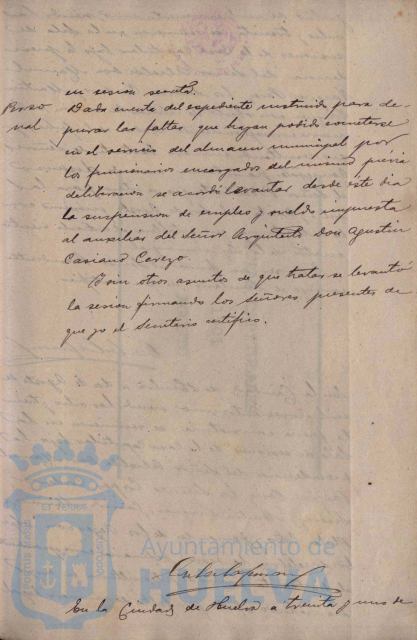 en sesión secreta.
Perso
nal
Dada cuenta del expediente instruido para de-
purar las faltas que hayan podido cometerse
en el servicio del almacen municipal por
los funcionarios encargados del mismo previa
deliberación se acordó levantar desde este dia
la suspensión de empleo y sueldo impuesta
al auxiliar del Señor Arquitecto Don Agustin
Casiano Cerezo.
Y sin otros asuntos de que tratar se levantó
la sesión firmando los Señores presentes de
que yo el Secretario certifico.
Ayuntamiento de
HUELVA
En la Ciudad de Huelva a treinta y uno de